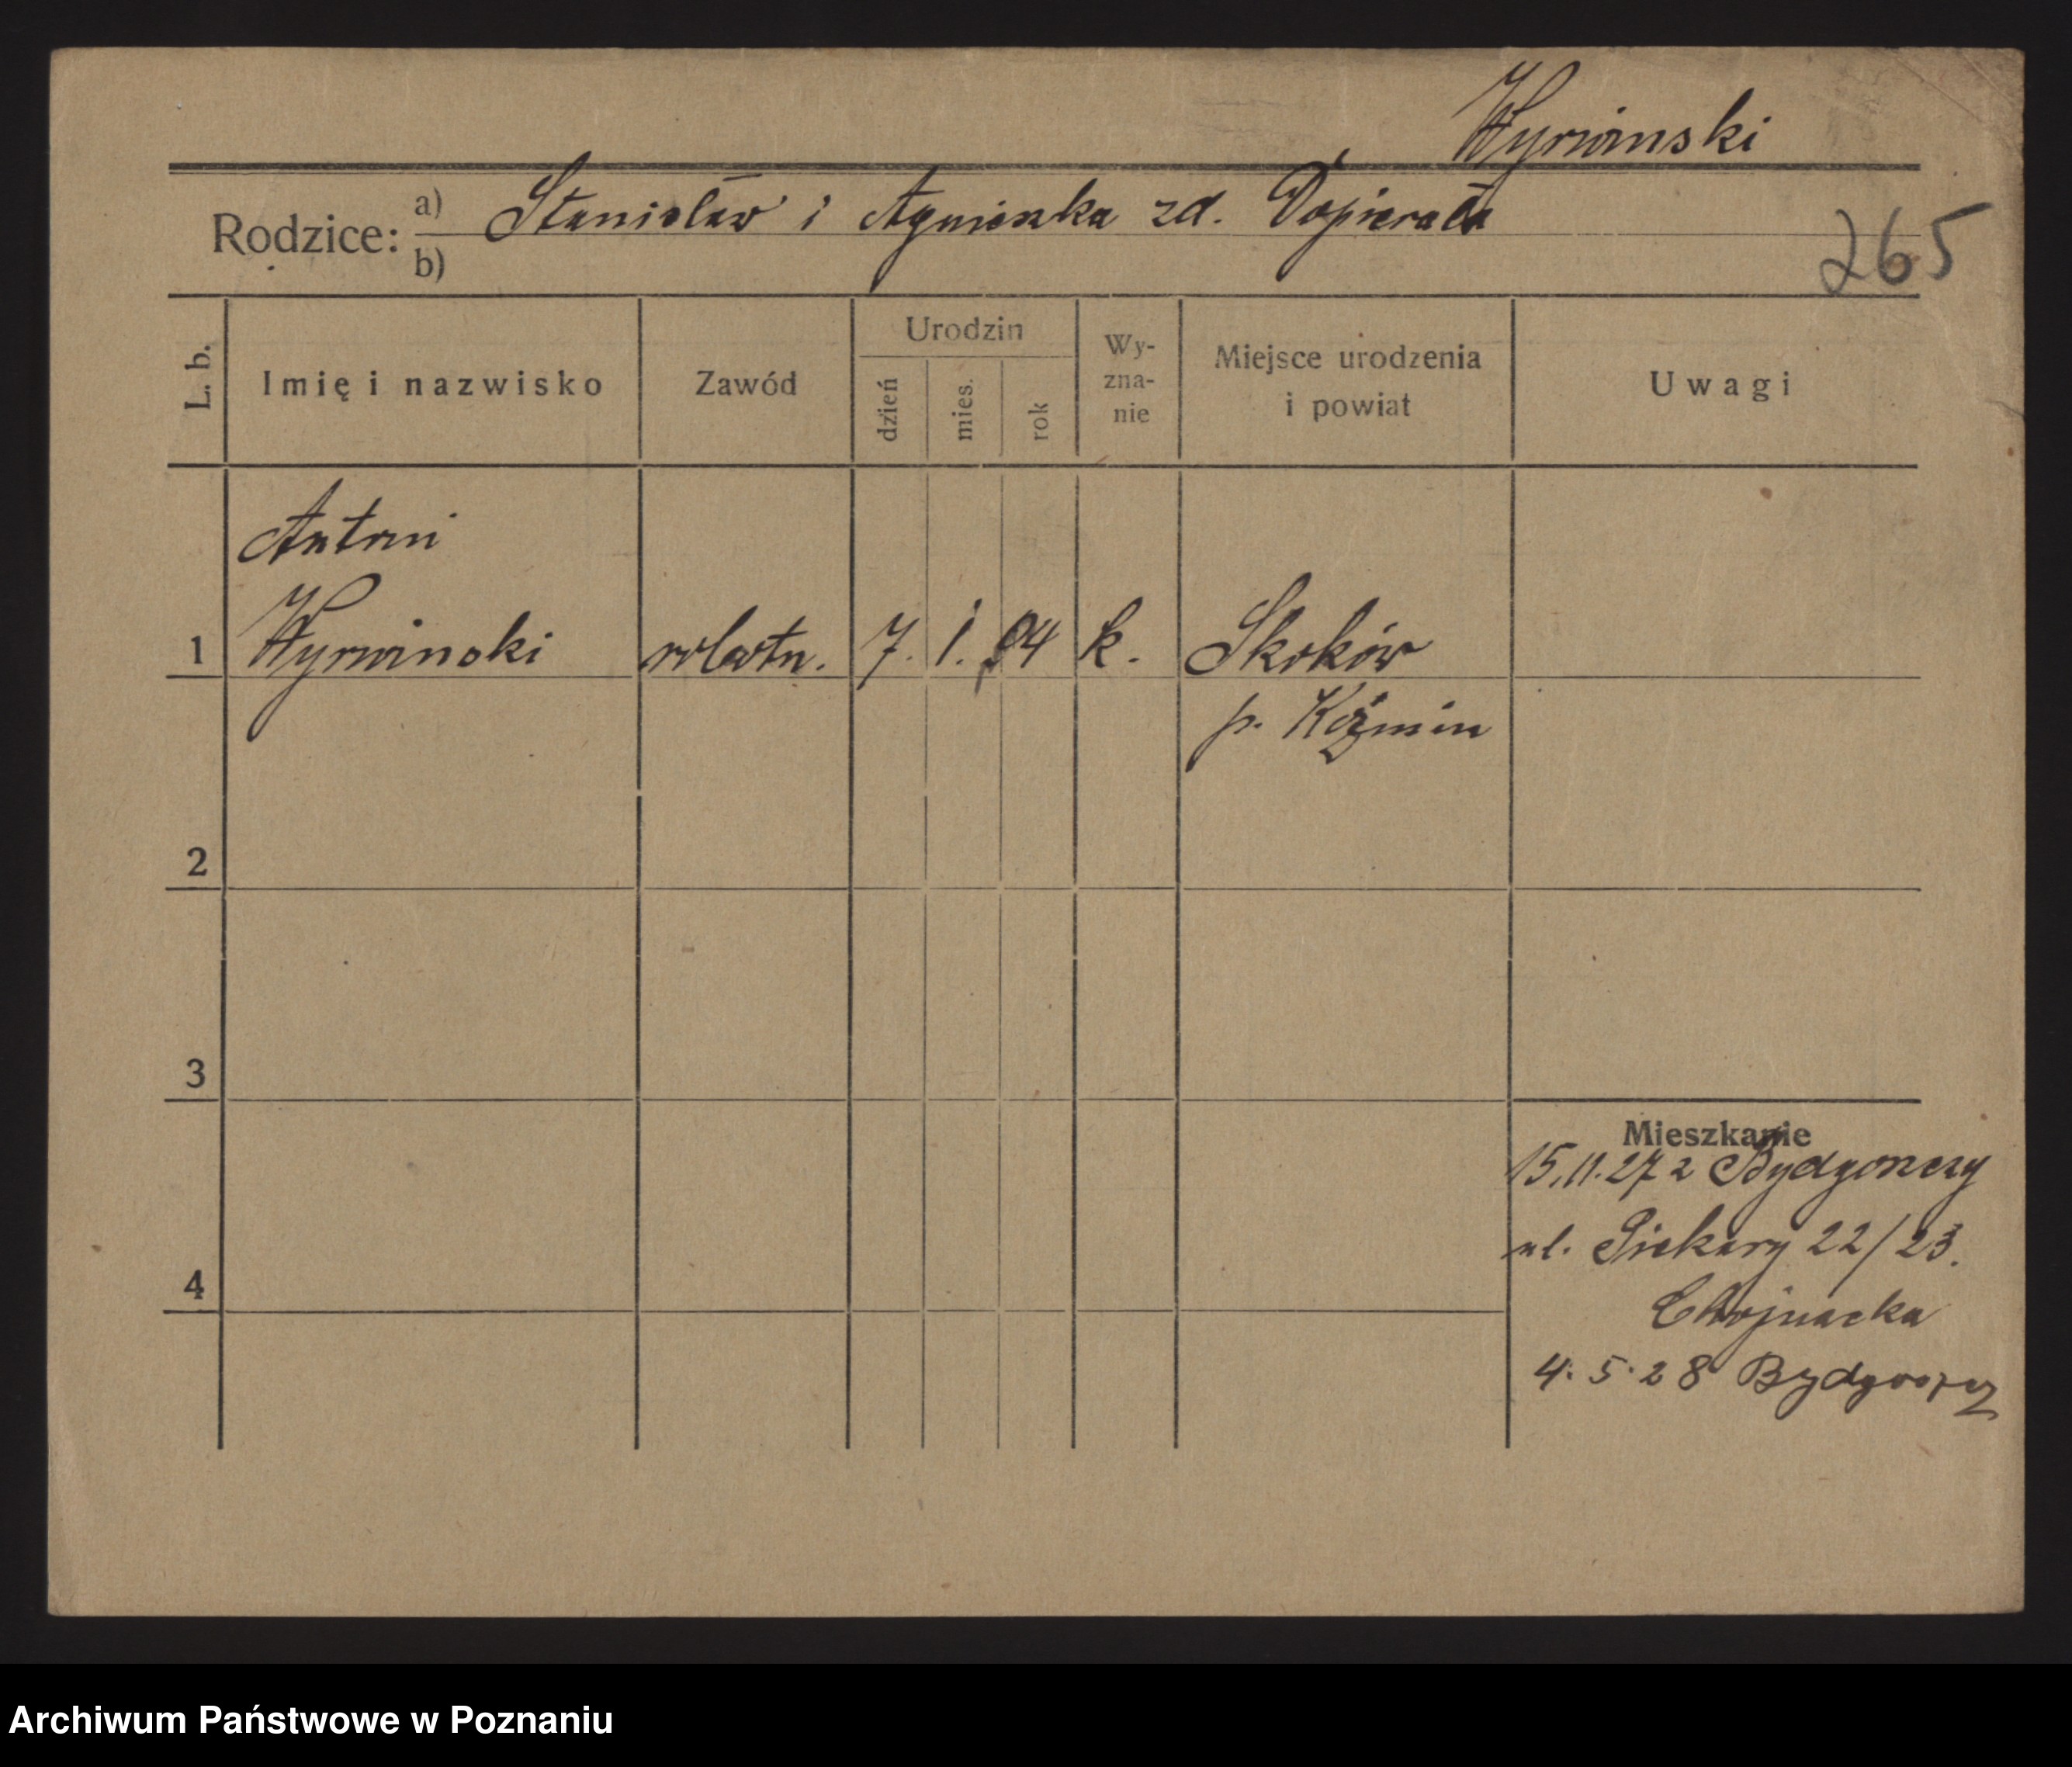 Wyrwinski
Rodzice: a) Stanisław i Agnieszka zd. Dopierała
b)
265
L. b.
Imię i nazwisko
Zawód
Urodzin
dzień
mies.
rok
Wy-
zna-
nie
Miejsce urodzenia
i powiat
Uwagi
Antoni
1 Wyrwinski robotn. 7. 1. 04 k. Skoków
p. Koźmin
2
3
4
Mieszkanie
15.11.27 z Bydgoszczy
ul. Piekary 22/23.
Chojnacka
4.5.28 Bydgoszcz
Archiwum Państwowe w Poznaniu